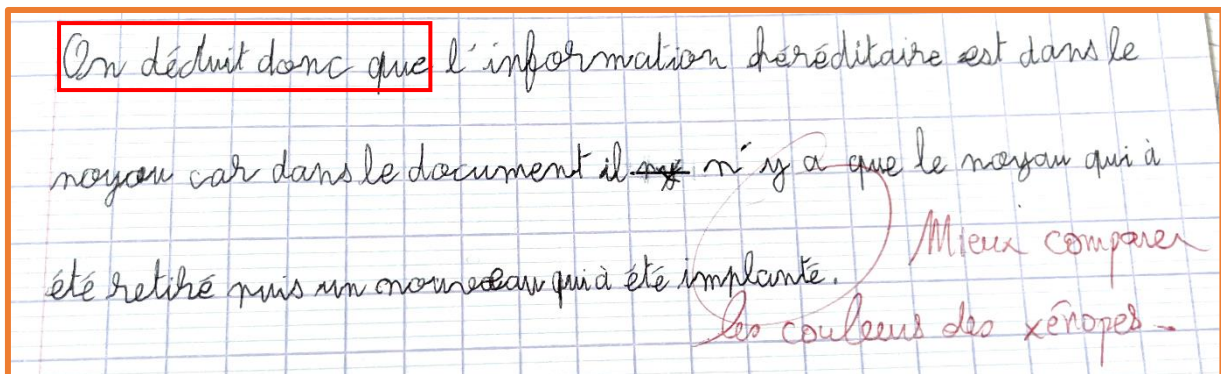 On déduit donc que l'information héréditaire est dans le
noyau car dans le document il ny n'y a que le noyau qui à
Mieux comparer
été retiré puis un nouveau qui à été implanté.
les couleurs des xénopes -